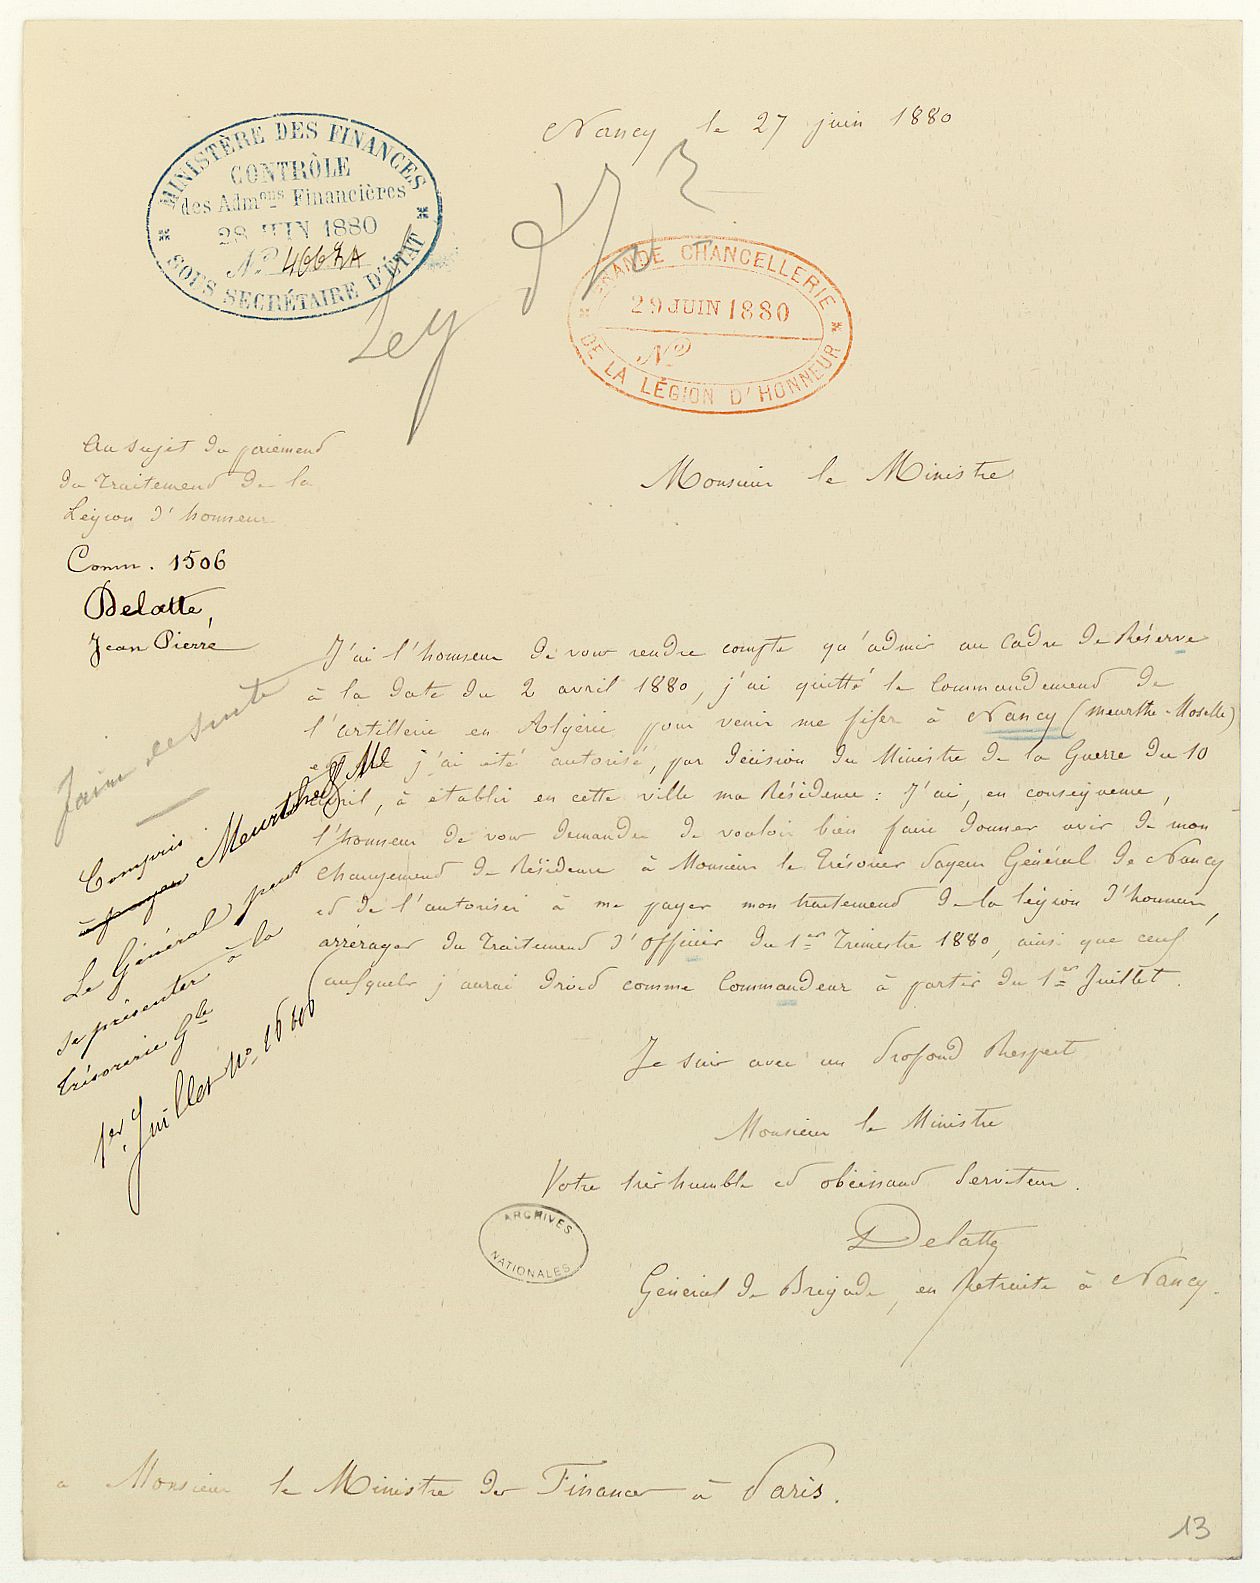 Nancy le 27 juin 1880
MINISTÈRE DES FINANCES
CONTRÔLE
des Adm.ons Financières
28 JUIN 1880
No
SOUS SECRÉTAIRE D'ÉTAT
Leg d'h
GRANDE CHANCELLERIE
29 JUIN 1880
No
DE LA LÉGION D'HONNEUR
Au sujet du paiement
du traitement de la
Légion d'honneur
Comm. 1506
Delatte,
Jean Pierre
Monsieur le Ministre
J'ai l'honneur de vous rendre compte qu'admis au Cadre de Réserve
à la date du 2 avril 1880, j'ai quitté le Commandement de
l'artillerie en Algérie pour venir me fixer à Nancy (Meurthe-Moselle)
j'ai été autorisé, par décision du Ministre de la Guerre du 10
avril, à établir en cette ville ma Résidence : J'ai, en conséquence,
l'honneur de vous demander de vouloir bien faire donner avis de mon
changement de Résidence à Monsieur le Trésorier Payeur Général de Nancy
et de l'autoriser à me payer mon traitement de la légion d'honneur,
arrérages du Traitement d'officier du 1er Trimestre 1880, ainsi que ceux
auxquels j'aurai droit comme Commandeur à partir du 1er Juillet.
Faire de suite
Compris
Meurthe & Mlle
Le Général peut
se présenter à la
trésorerie Gle
1er Juillet No
Je suis avec un profond Respect
Monsieur le Ministre
Votre très humble et obéissant Serviteur.
Delatte
Général de Brigade, en Retraite à Nancy.
ARCHIVES
NATIONALES
a Monsieur le Ministre des Finances à Paris.
13